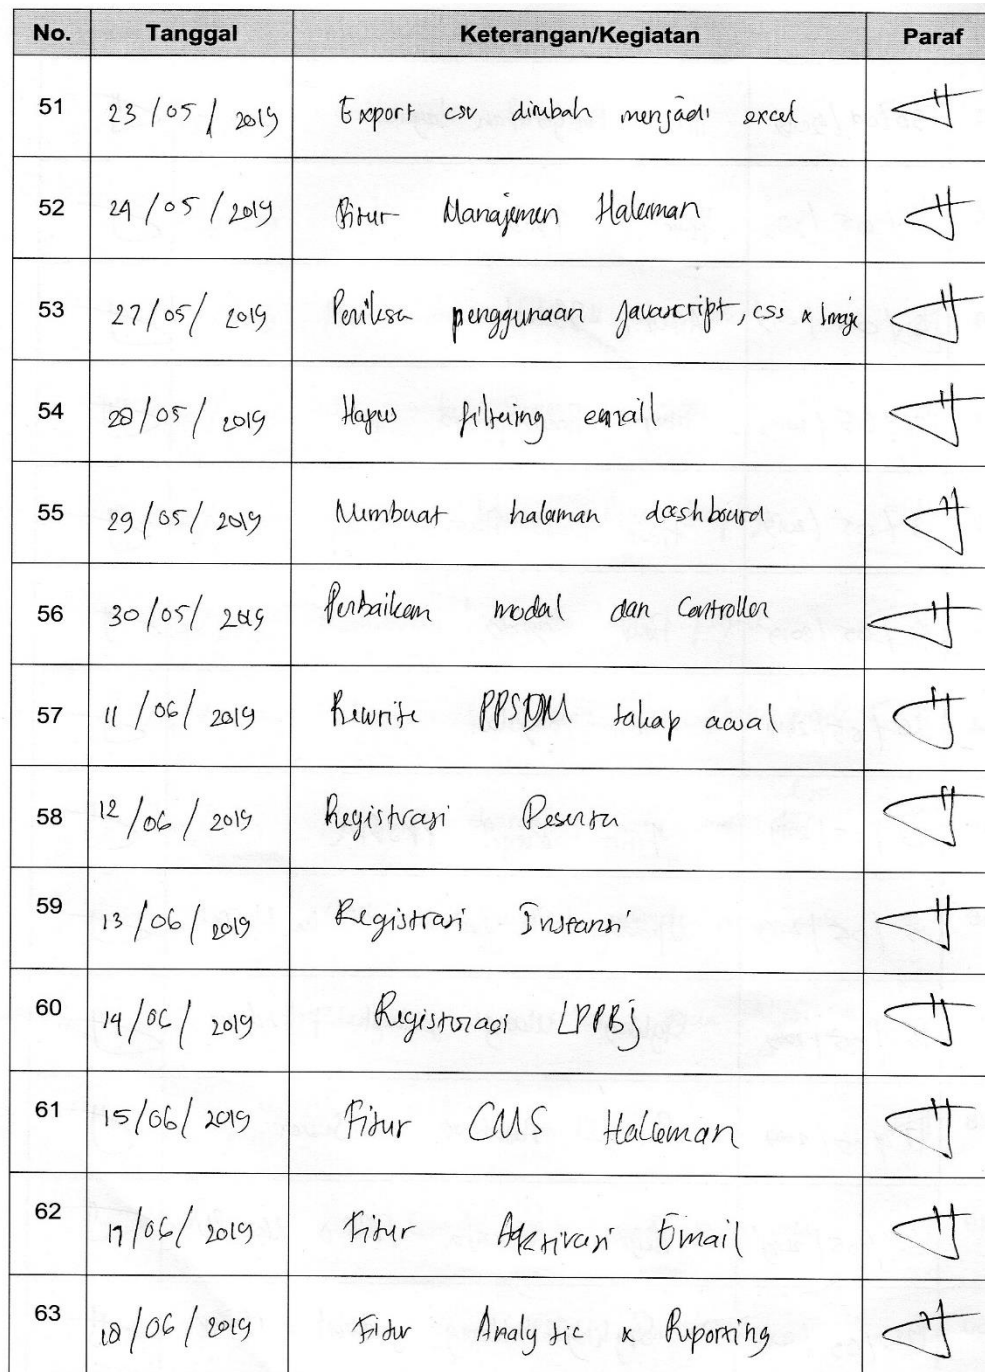 No. Tanggal Keterangan/Kegiatan Paraf
51 23/05/2019 Export csv dirubah menjadi excel
52 24/05/2019 Fitur Manajemen Halaman
53 27/05/2019 Periksa penggunaan javascript, css & Image
54 28/05/2019 Hapus filtering email
55 29/05/2019 Membuat halaman dashboard
56 30/05/2019 Perbaikan modal dan Controller
57 11/06/2019 Rewrite PPSDM tahap awal
58 12/06/2019 Registrasi Peserta
59 13/06/2019 Registrasi Instansi
60 14/06/2019 Registrasi LPPBJ
61 15/06/2019 Fitur CMS Halaman
62 17/06/2019 Fitur Aktivasi Email
63 18/06/2019 Fitur Analytic & Reporting